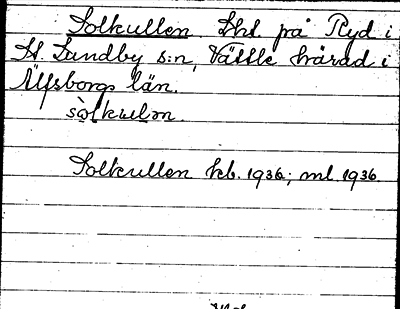 Solkullen. Lht. på Ryd i
St. Lundby s:n, Vättle härad i
Älfsborgs län.
sòlkulən.
Solkullen kb. 1936; ml. 1936